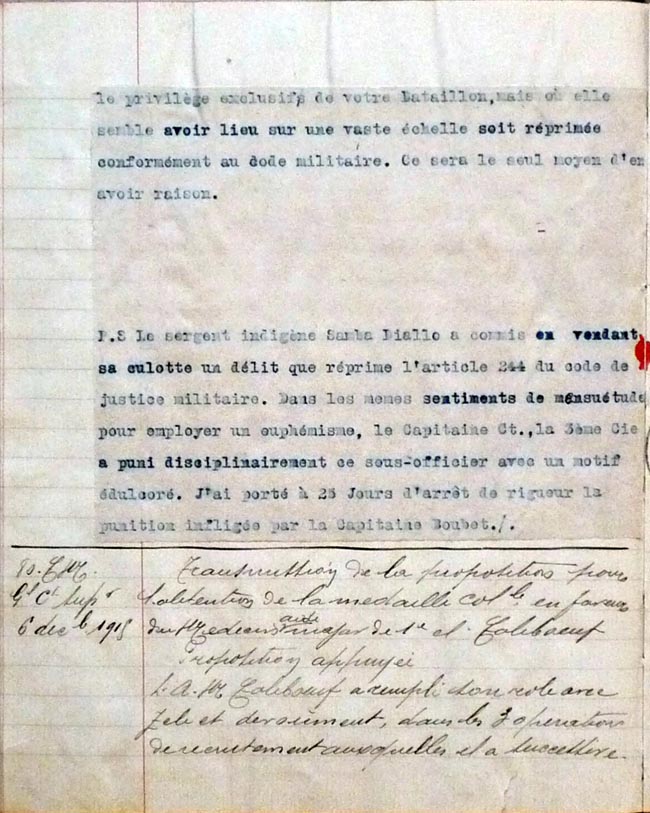 le privilège exclusifs de votre Bataillon, mais où elle
semble avoir lieu sur une vaste échelle soit réprimée
conformément au code militaire. Ce sera le seul moyen d'en
avoir raison.
P.S Le sergent indigène Samba Diallo a commis en vendant
sa culotte un délit que réprime l'article 244 du code de
justice militaire. Dans les memes sentiments de mansuétude
pour employer un euphémisme, le Capitaine Ct., la 3ème Cie
a puni disciplinairement ce sous-officier avec un motif
édulcoré. J'ai porté à 25 Jours d'arrêt de rigueur la
punition infligée par la Capitaine Boubet./.
Transmission de la proposition pour
Gl Ct Supr l'obtention de la médaille colle en faveur
6 déc b 1915 du Médecin aide major de 1e cl. Taleboeuf
Proposition appuyée
L.A.M Taleboeuf a rempli son rôle avec
zele et dévouement, dans les 3 opérations
de recrutement auxquelles il a successive-